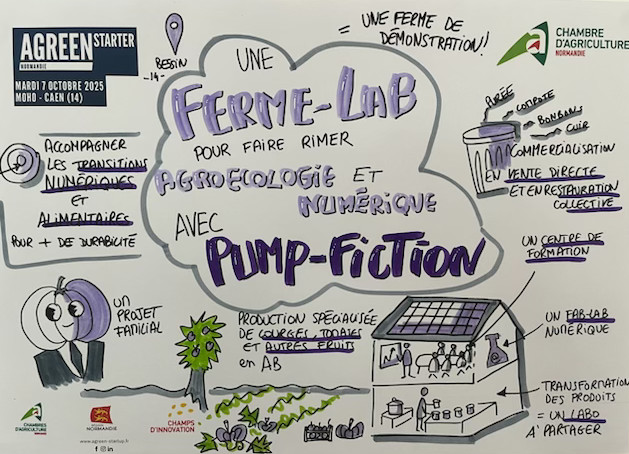 AGREEN STARTER
NORMANDIE
MARDI 7 OCTOBRE 2025
MOHO - CAEN (14)
BEGIN
-14-
= UNE FERME DE
DÉMONSTRATION!
CHAMBRE
D'AGRICULTURE
NORMANDIE
UNE
FERME-LAB
POUR FAIRE RIMER
AGROECOLOGIE ET
NUMÉRIQUE
AVEC
PUMP-FICTION
ACCOMPAGNER
LES TRANSITIONS
NUMÉRIQUES
ET
ALIMENTAIRES
POUR + DE DURABILITÉ
PURÉE
COMPOTE
BONBONS
CUIR
COMMERCIALISATION
EN VENTE DIRECTE
ET EN RESTAURATION
COLLECTIVE
UN CENTRE DE
FORMATION
UN FAB-LAB
NUMÉRIQUE
TRANSFORMATION
DES PRODUITS
= UN LABO
A' PARTAGER
UN
PROJET
FAMILIAL
PRODUCTION SPÉCIALISÉE
DE COURGES, TOMATES
ET AUTRES FRUITS
en AB
CHAMBRES
D'AGRICULTURE
NORMANDIE
CHAMPS
D'INNOVATION
www.agreen-startup.fr